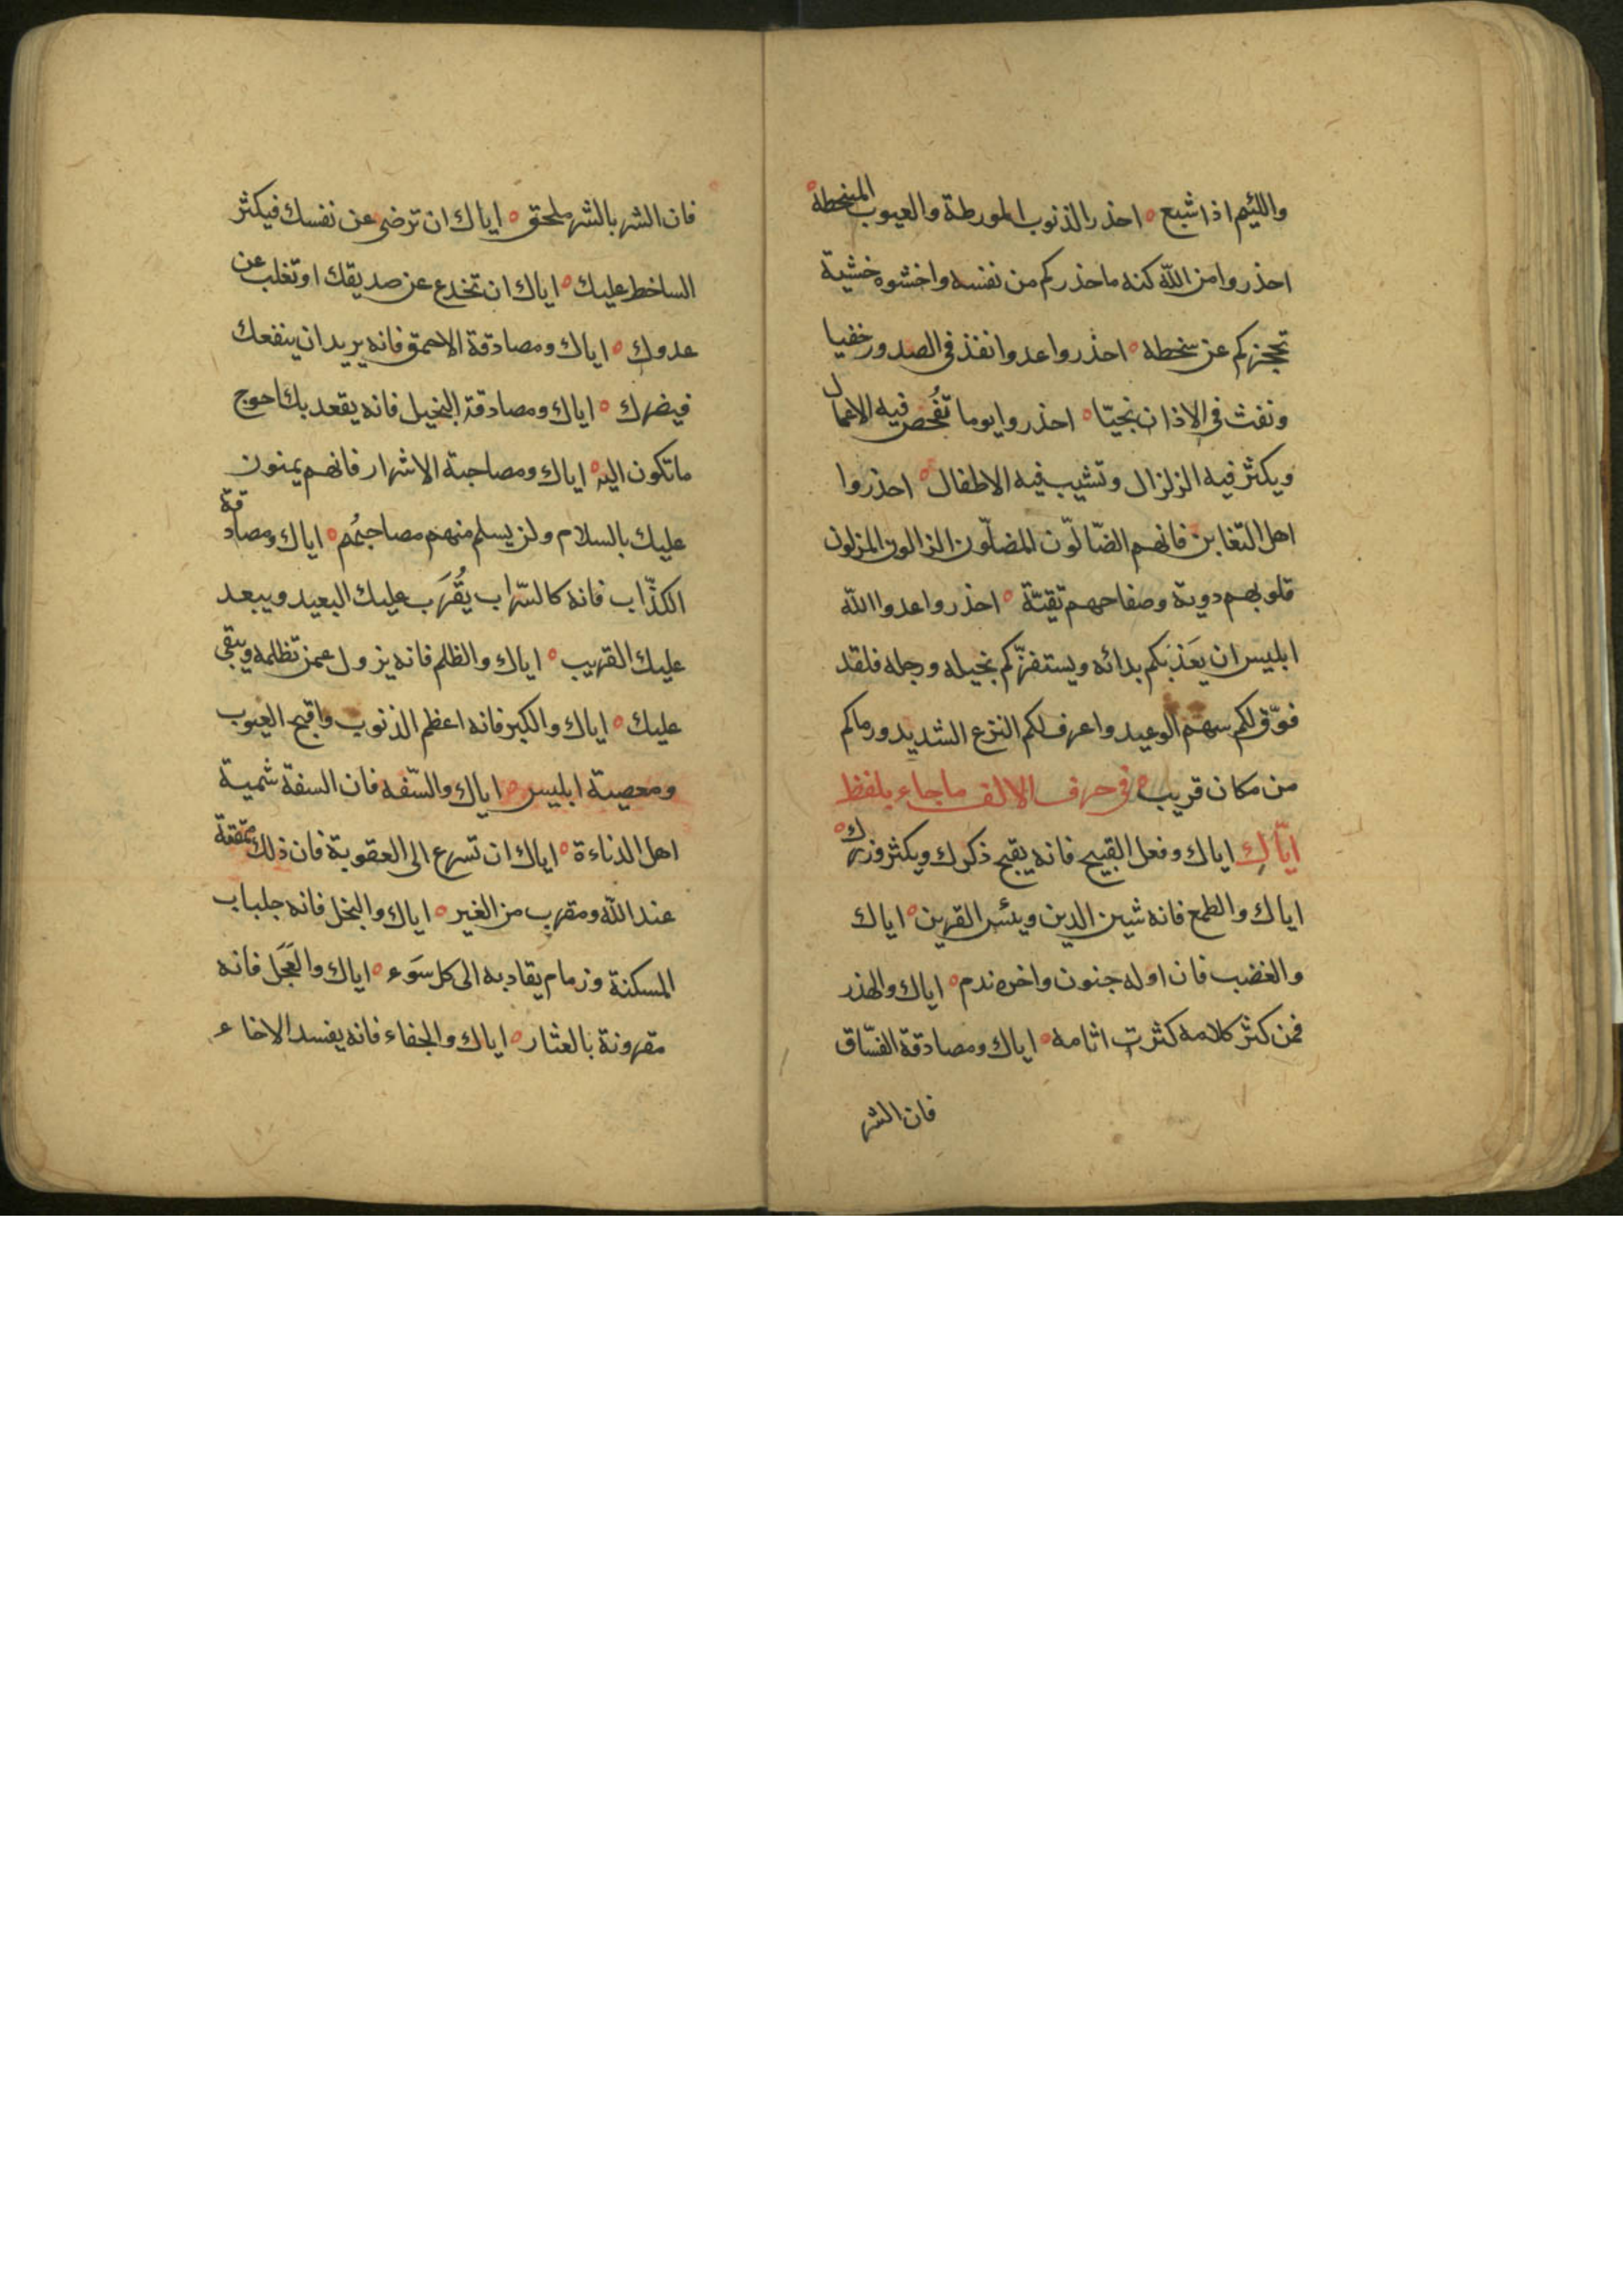 واللئيم اذا شبع ه احذر الذنوب المورطة والعيوب المسخطة ه
احذروا من الله كنه ما حذركم من نفسه واخشوه خشية
تحجزكم عن سخطه ه احذروا عدوا نفذ في الصدور خفيا
ونفث في الاذان نجيّا ه احذروا يوما تُفحص فيه الاعمال
ويكثر فيه الزلزال وتشيب فيه الاطفال ه احذروا
اهل فانهم الضّالّون المضلّون الزالون المزلون
قلوبهم دوية وصفاحهم نقيّة ه احذروا عدوا الله
ابليس ان يعذبكم بدائه ويستفزّكم بخيله ورجله فلقد
فوّق لكم سهم الوعيد واعرف لكم النزع الشديد ورماكم
من مكان قريب ه في حرف الالف ما جاء بلفظ
ايّاك اياك وفعل القبيح فانه يقبح ذكرك ويكثر وزرك ه
اياك والطمع فانه شين الدين وبئس القرين ه اياك
والغضب فان اوله جنون واخره ندم ه اياك والهذر
فمن كثر كلامه كثرت اثامه ه اياك ومصادقة الفسّاق
فان الشر
فان الشر بالشر ملحق ه اياك ان ترضى عن نفسك فيكثر
الساخط عليك ه اياك ان تخدع عن صديقك او تغلب عن
عدوك ه اياك ومصادقة الاحمق فانه يريد ان ينفعك
فيضرك ه اياك ومصادقة البخيل فانه يقعد بك احوج
ما تكون اليه ه اياك ومصاحبة الاشرار فانهم يمنون
عليك بالسلام ولن يسلم منهم مصاحبُهم ه اياك ومصادقة
الكذّاب فانه كالسّراب يُقرَب عليك البعيد ويبعد
عليك القريب ه اياك والظلم فانه يزول عمن تظلمه ويبقى
عليك ه اياك والكبر فانه اعظم الذنوب واقبح العيوب
ومعصية ابليس ه اياك والسّفه فان السفة شمية
اهل الدناءة ه اياك ان تسرع الى العقوبة فان ذلك ممقتة
عند الله ومقرب من الغير ه اياك والبخل فانه جلباب
المسكنة وزمام يقاد به الى كل سَوء ه اياك والعَجَل فانه
مقرونة بالعثار ه اياك والجفاء فانه يفسد الاخاء